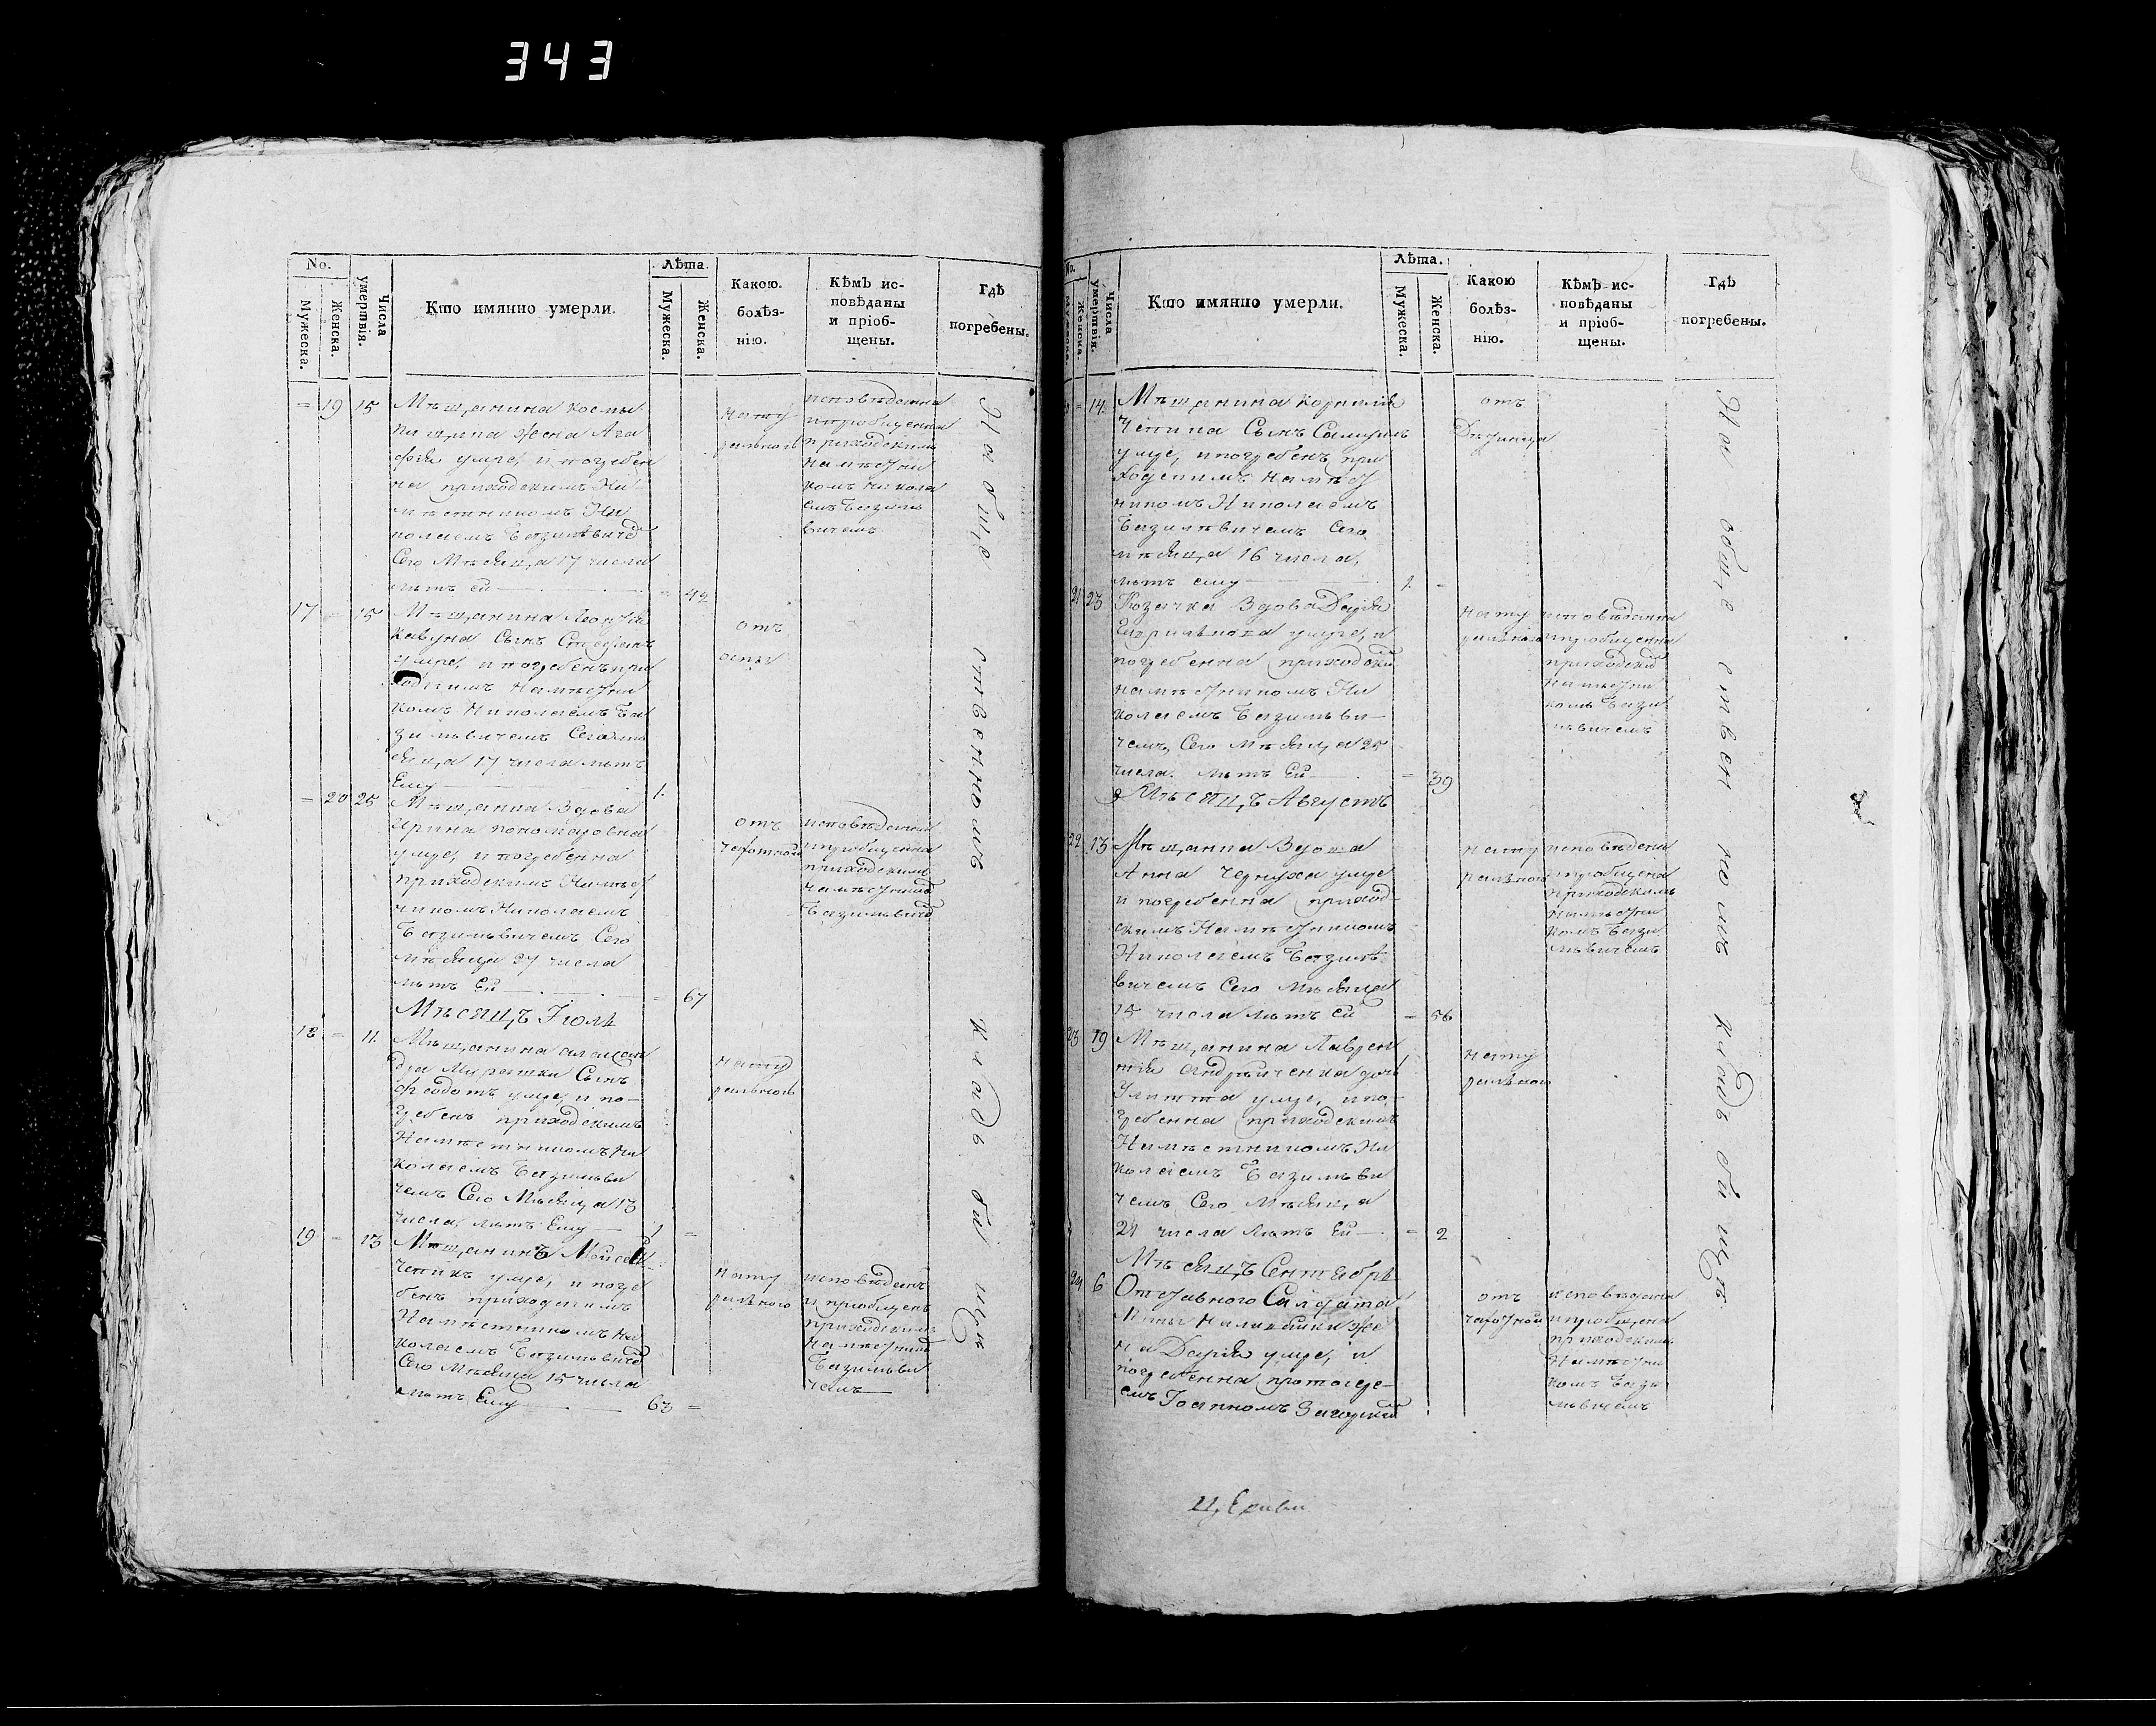 343
No.
Мужеска.
Женска.
Числа умертвія.
Кто имянно умерли.
Лѣта.
Мужеска.
Женска.
Какою.
болѣз-
нію.
Кѣмъ ис-
повѣданы
и пріоб-
щены.
Гдѣ
погребены.
= 19 15
Мѣщанина Космы
жена Ага
фія умре, и погребен
на приходскимъ На
мѣстникомъ Ни
колаемъ Базилѣвиче
Сего Мѣсяца 17 числа
лѣтъ ей = 42
нату
ральною
исповѣданна
и приобщенна
приходскимъ
намѣстни
комъ Никола
емъ Базилѣ
вичемъ
17 = 15
Мѣщанина
Кавуна Сынъ Стефанъ
умре, и погребенъ при
ходскимъ намѣстни
комъ Николаемъ Ба
зилѣвичемъ Сего мѣ
сяца 17 числа лѣтъ
Ему 1.
отъ
оспы
= 20 25
Мѣщанка Вдова
Ирина Пономаровна
умре, и погребенна
приходскимъ Намѣст
никомъ Николаемъ
Базилѣвичемъ Сего
мѣсяца 27 числа
лѣтъ Ей = 67
отъ
чахотной
исповѣданна
и приобщенна
приходскимъ
намѣстнико
Базилѣвиче
Мѣсяцъ Іюль
18 = 11.
Мѣщанина Алексан
дра Мурашки Сынъ
Феодотъ умре, и по-
гребенъ приходскимъ
Намѣстникомъ Ни
колаемъ Базилѣви
чемъ Сего Мѣсяца 13
числа, лѣтъ Ему 1 =
нату
ральною
19 = 13
Мѣщанинъ Моисей
умре, и погре
бенъ приходскимъ
Намѣстникомъ Ни
колаемъ Базилѣвиче
Сего Мѣсяца 15 числа
лѣтъ Ему 63 =
нату
рального
исповѣданъ
и приобщенъ
приходскимъ
намѣстнико
Базилѣви
чемъ
На общественномъ кладбищѣ
No.
Мужеска.
Женска.
Числа умертвія.
Кто имянно умерли.
Лѣта.
Мужеска.
Женска.
Какою
болѣз-
нію.
Кѣмъ ис-
повѣданы
и пріоб-
щены.
Гдѣ
погребены.
= 14.
Мѣщанина Корнилія
Сынъ Самуилъ
умре, и погребенъ при
ходскимъ намѣст
никомъ Николаемъ
Базилѣвичемъ Сего
мѣсяца 16 числа,
лѣтъ ему 1. =
отъ
21 23
Козачка Вдова Дарія
умре, и
погребенна приходски
намѣстникомъ Ни
колаемъ Базилѣви-
чемъ, Сего Мѣсяца 25
числа. лѣтъ Ей = 39
нату
рального
исповѣданна
и приобщенна
приходски
намѣстни
комъ Бази
лѣвичемъ
Мѣсяцъ Августъ
22 13
Мѣщанка Вдова
Анна Чернуха умре
и погребенна приход-
скимъ Намѣстникомъ
Николаемъ Базилѣ
вичемъ Сего Мѣсяца
15 числа лѣтъ ей = 56
нату
рального
исповѣдена
и приобщена
приходскимъ
намѣстни
комъ Бази
лѣвичемъ
23 19
Мѣщанина Лаврен
тія Андрѣйченка дочь
Улитта умре, и по
гребенна приходскимъ
Намѣстникомъ Ни
колаемъ Базилѣви
чемъ Сего Мѣсяца
21 числа лѣтъ Ей = 2
нату
рального
Мѣсяцъ Сентябрь
24 6
Отставного Салдата
же
на Дарія умре, и
погребенна протоіере-
емъ Іоанномъ
отъ
чахотной
исповѣдана
и приобщена
приходскимъ
Намѣстни
комъ Бази
лѣвичемъ
На общественномъ кладбищѣ
Церкви